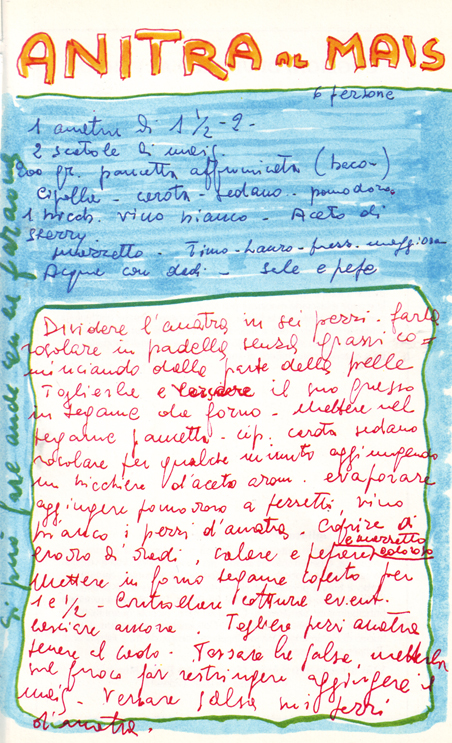 ANITRA AL MAIS
6 persone
1 anatra di 1 ½ - 2 -
2 scatole di mais
200 gr. pancetta affumicata (baco-)
Cipolla - carota - sedano - pomodoro
1 bicch. vino bianco - Aceto di
sherry
mazzetto - Timo - Lauro - prezz. maggiorana
Acqua con dadi - sale e pepe
Dividere l'anatra in sei pezzi - farla
rosolare in padella senza grassi co=
minciando dalla parte della pelle
Toglierla e lasciare il suo grasso
in tegame da forno - Mettere nel
tegame pancetta - cip. carota sedano
rosolare per qualche minuto aggiungendo
un bicchiere d'aceto arom. evaporare
aggiungere pomodoro a pezzetti, vino
bianco i pezzi d'anatra. Coprire di
e mazzetto
brodo di dadi, salare e pepare odoroso
Mettere in forno tegame coperto per
1 e ½ - Controllare cottura event.
lasciare ancora. Togliere pezzi anatra
tenere al caldo. Passare la salsa, metterla
sul fuoco far restringere aggiungere il
mais - Versare salsa sui pezzi
d'anatra.
si può fare anche con la faraona